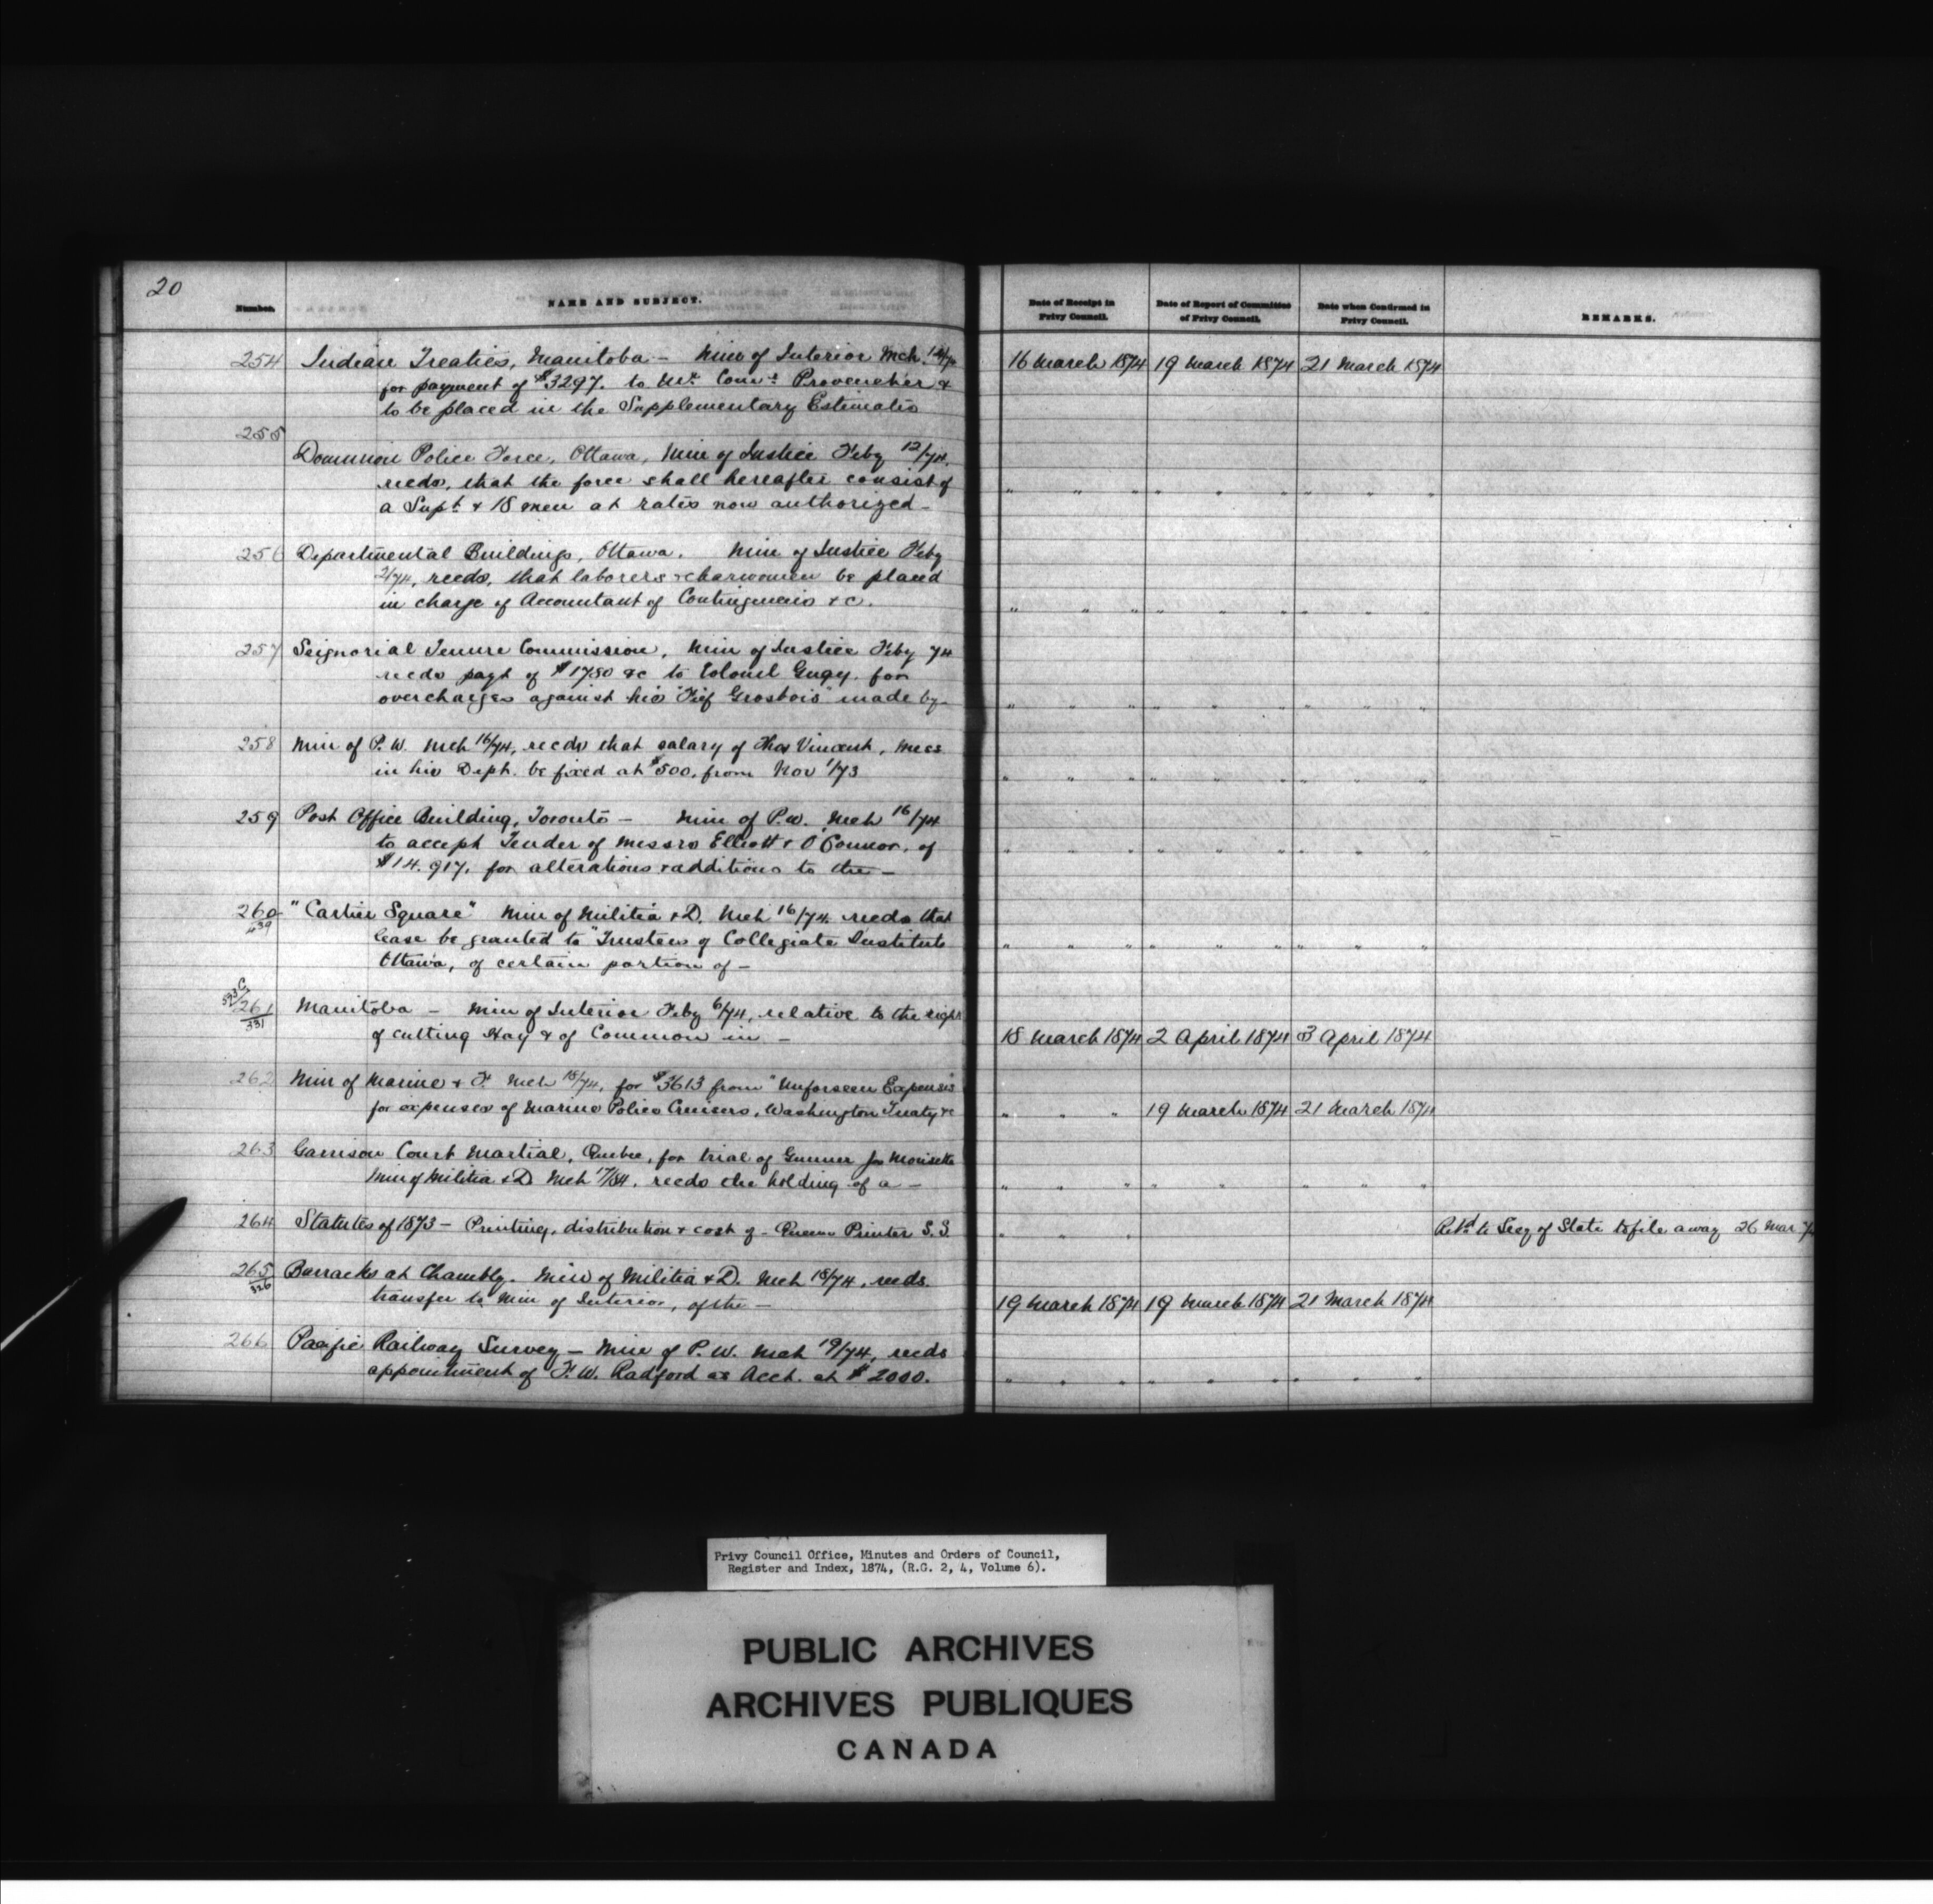 20
Number.
NAME AND SUBJECT.
Date of Receipt in
Privy Council.
Date of Report of Committee
of Privy Council.
Date when Confirmed in
Privy Council.
REMARKS.
254 Indian Treaties, Manitoba - Min of Interior Mch
for payment of $3297. to Mr. Comr. Provencher &
to be placed in the Supplementary Estimates
16 March 1874 19 March 1874 21 March 1874
255
Dominion Police Force, Ottawa, Min of Justice Feby 12/74.
recds. that the force shall hereafter consist of
a Supt. & 18 men at rates now authorized -
" " " " " " " " "
256 Departmental Buildings, Ottawa. Min of Justice Feby
2/74, recds, that laborers & charwomen be placed
in charge of Accountant of Contingencies & c.
" " " " " " " " "
257 Seignorial Tenure Commission, Min of Justice Feby 74
recds payt of $1750 &c to Colonel Gugy. for
overcharges against his "Fief Grosbois" made by -
" " " " " " " " "
258 Min of P. W. Mch 16/74, recds that salary of Thos Vincent, Mess
in his Dept. be fixed at $500. from Nov 1/73
" " " " " " " " "
259 Post Office Building, Toronto - Min of P.W. Mch 16/74
to accept Tender of Messrs Elliott & O'Connor, of
$14.917. for alterations & additions to the -
" " " " " " " " "
260 "Cartier Square" Min of Militia & D. Mch 16/74. recds that
439
lease be granted to "Trustees of Collegiate Institute
Ottawa, of certain portion of -
" " " " " " " " "
593 C
261 Manitoba - Min of Interior Feby 6/74, relative to the right
331
of cutting Hay & of Common in -
18 March 1874 2 April 1874 3 April 1874
262 Min of Marine & F. Mch 18/74, for $3613 from "Unforseen Expenses
for expenses of Marine Police Cruisers, Washington Treaty &c
" " " 19 March 1874 21 March 1874
263 Garrison Court Martial, Quebec, for trial of Gunner Jos Morisette
Min of Militia & D. Mch 17/84. recds the holding of a -
" " " " " " " " "
264 Statutes of 1873 - Printing, distribution & cost of - Queens Printer S.S.
" " " Retd. to Secy of State to file away 26 Mar
265 Barracks at Chambly. Min of Militia & D. Mch 18/74, recds.
326
transfer to Min of Interior, of the -
19 March 1874 19 March 1874 21 March 1874
266 Pacific Railway Survey - Min of P. W. Mch 19/74, recds
appointment of F. W. Radford as Acct. at $2000.
" " " " " " " " "
Privy Council Office, Minutes and Orders of Council,
Register and Index, 1874, (R.G. 2, 4, Volume 6).
PUBLIC ARCHIVES
ARCHIVES PUBLIQUES
CANADA